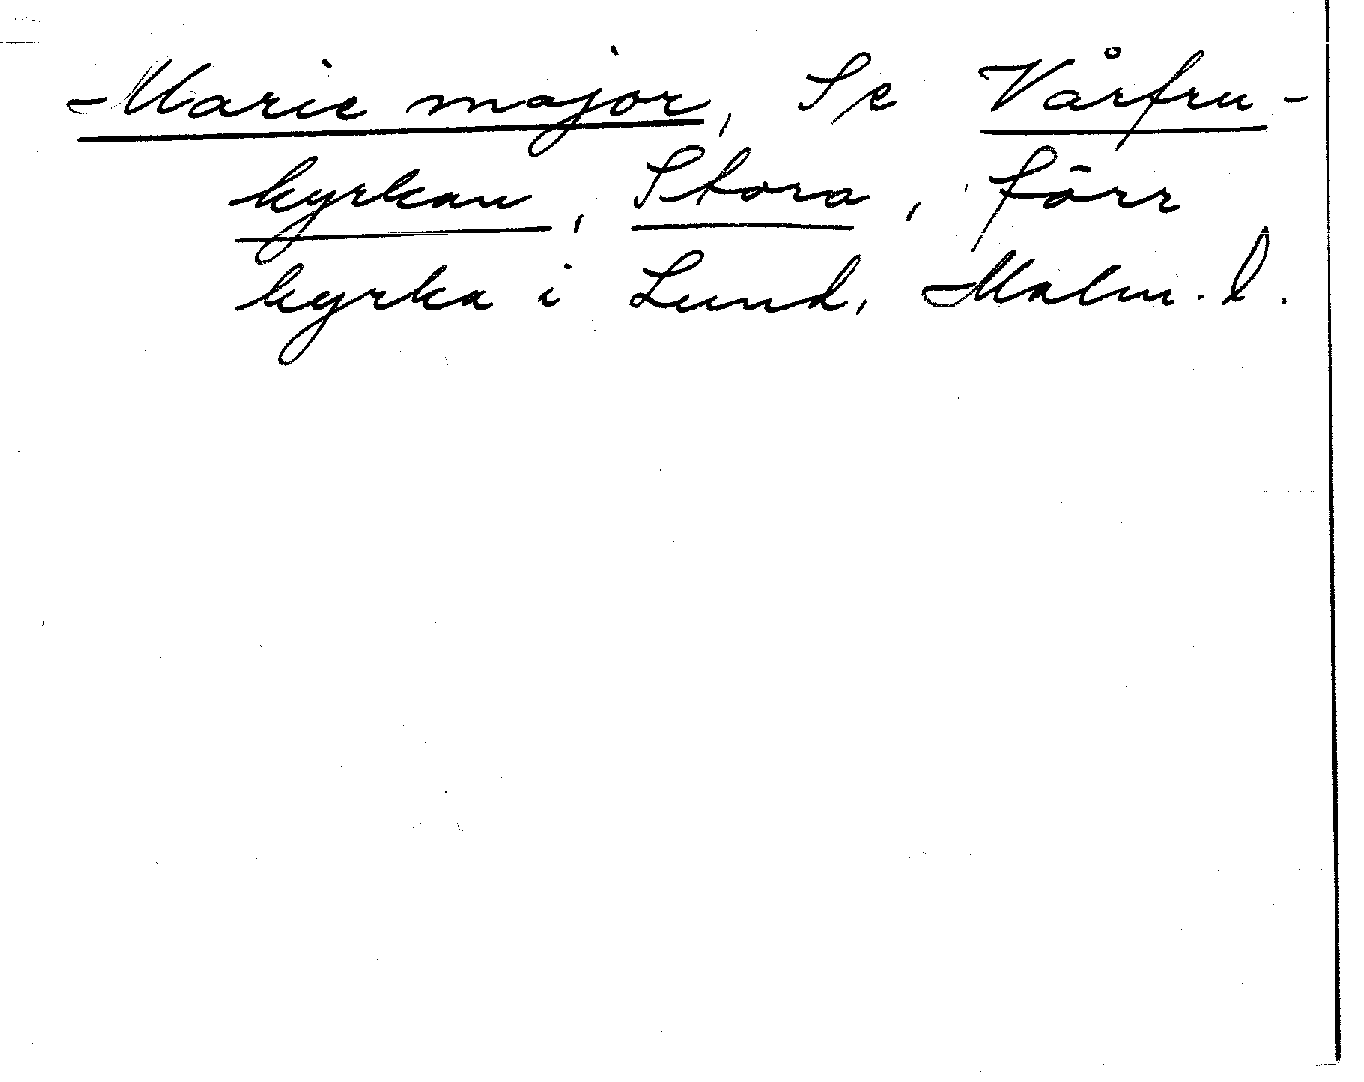 Marie major, Se Vårfru-
kyrkan, Stora, förr
kyrka i Lund, Malm. l.